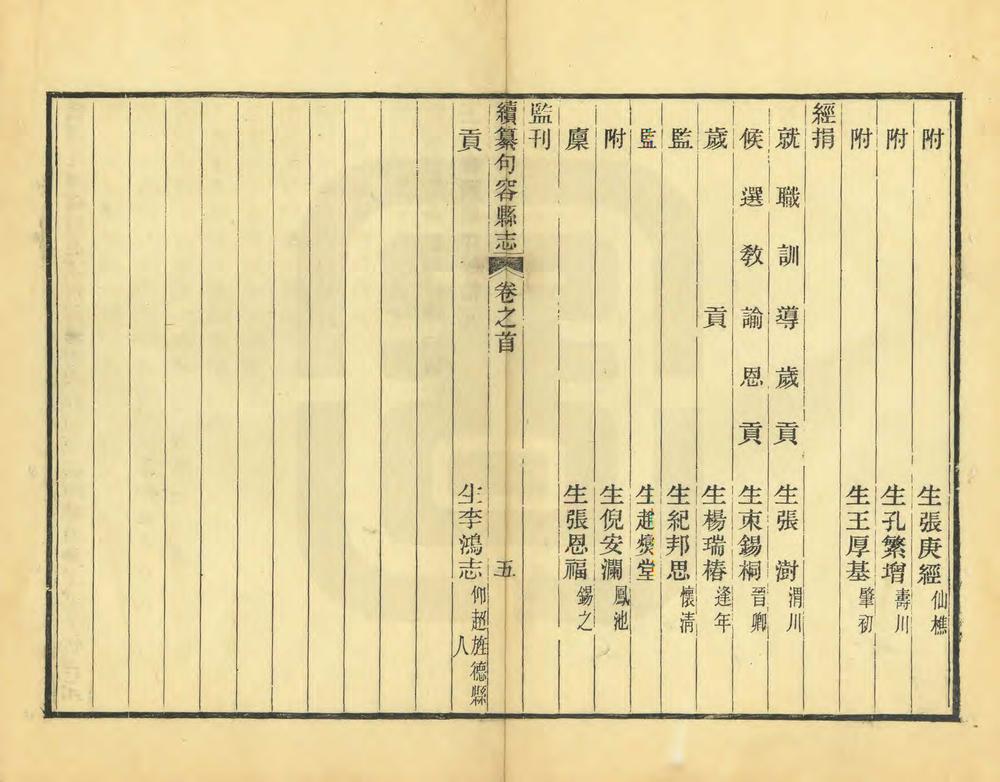 附生張庚經仙樵
附生孔繁增壽川
附生王厚基肇初
經捐
就職訓導歲貢生張澍渭川
候選教諭恩貢生束錫桐晉卿
歲貢生楊瑞椿逢年
監生紀邦思懷清
監生趙燠堂
附生倪安瀾鳳池
廩生張恩福錫之
監刊
續纂句容縣志 卷之首 五
貢生李鴻志仰超旌德縣人